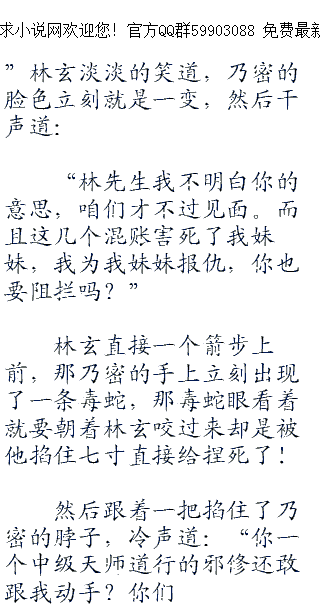 求小说网欢迎您！官方QQ群59903088 免费最新
”林玄淡淡的笑道，乃密的
脸色立刻就是一变，然后干
声道：
“林先生我不明白你的
意思，咱们才不过见面。而
且这几个混账害死了我妹
妹，我为我妹妹报仇，你也
要阻拦吗？”
林玄直接一个箭步上
前，那乃密的手上立刻出现
了一条毒蛇，那毒蛇眼看着
就要朝着林玄咬过来却是被
他掐住七寸直接给捏死了！
然后跟着一把掐住了乃
密的脖子，冷声道：“你一
个中级天师道行的邪修还敢
跟我动手？你们